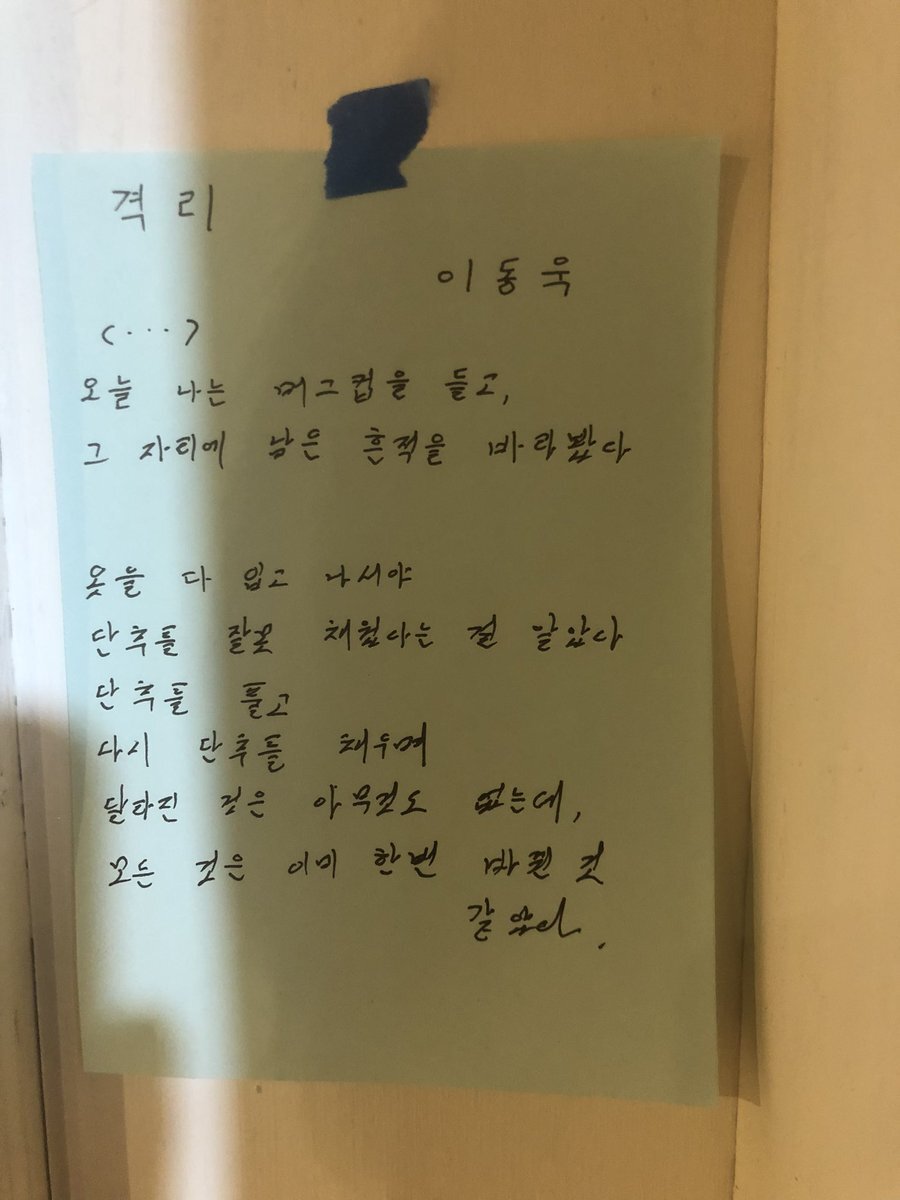 격리
이동욱
<···>
오늘 나는 머그컵을 들고,
그 자리에 남은 흔적을 바라봤다
옷을 다 입고 나서야
단추를 잘못 채웠다는 걸 알았다
단추를 풀고
다시 단추를 채우며
달라진 것은 아무것도 없는데,
모든 것은 이미 한번 바뀐 것
같았다.